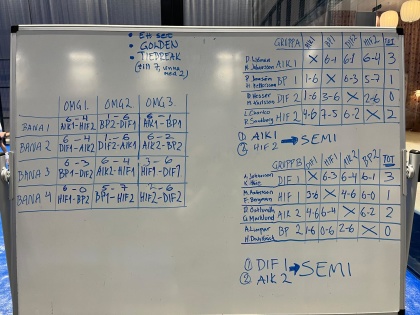 • Ett set
• GOLDEN
• TIEBREAK
(till 7, vinna med 2)
OMG1. OMG2 OMG3.
BANA1 6-4 AIK1-HIF2 1-6 BP2-DIF1 AIK1-BP1
BANA 2 DIF1-AIK2 1-6 DIF2-AIK1 6-2 AIK2-BP2
BANA 3 6-3 BP1-DIF2 6-4 AIK2-HIF1 3-6 HIF1-DIF1
BANA 4 6-0 HIF1-BP2 5-7 BP1-HIF2 2-6 HIF2-DIF2
GRUPP A AIK1 BP1 DIF2 HIF2 TOT
AIK1 X 6-1 6-1 6-4 3
BP 1 1-6 X 6-3 5-7 1
DIF 2 1-6 3-6 X 2-6 0
HIF2 4-6 7-5 6-2 X 2
① AIK1
② HIF2 → SEMI
GRUPP B DIF1 HIF1 AIK2 BP2 TOT
DIF 1 X 6-3 6-4 6-1 3
HIF1 3-6 X 4-6 6-0 1
AIK 2 4-6 6-4 X 6-2 2
BP 2 1-6 0-6 2-6 X 0
① DIF1 → SEMI
② AIK2